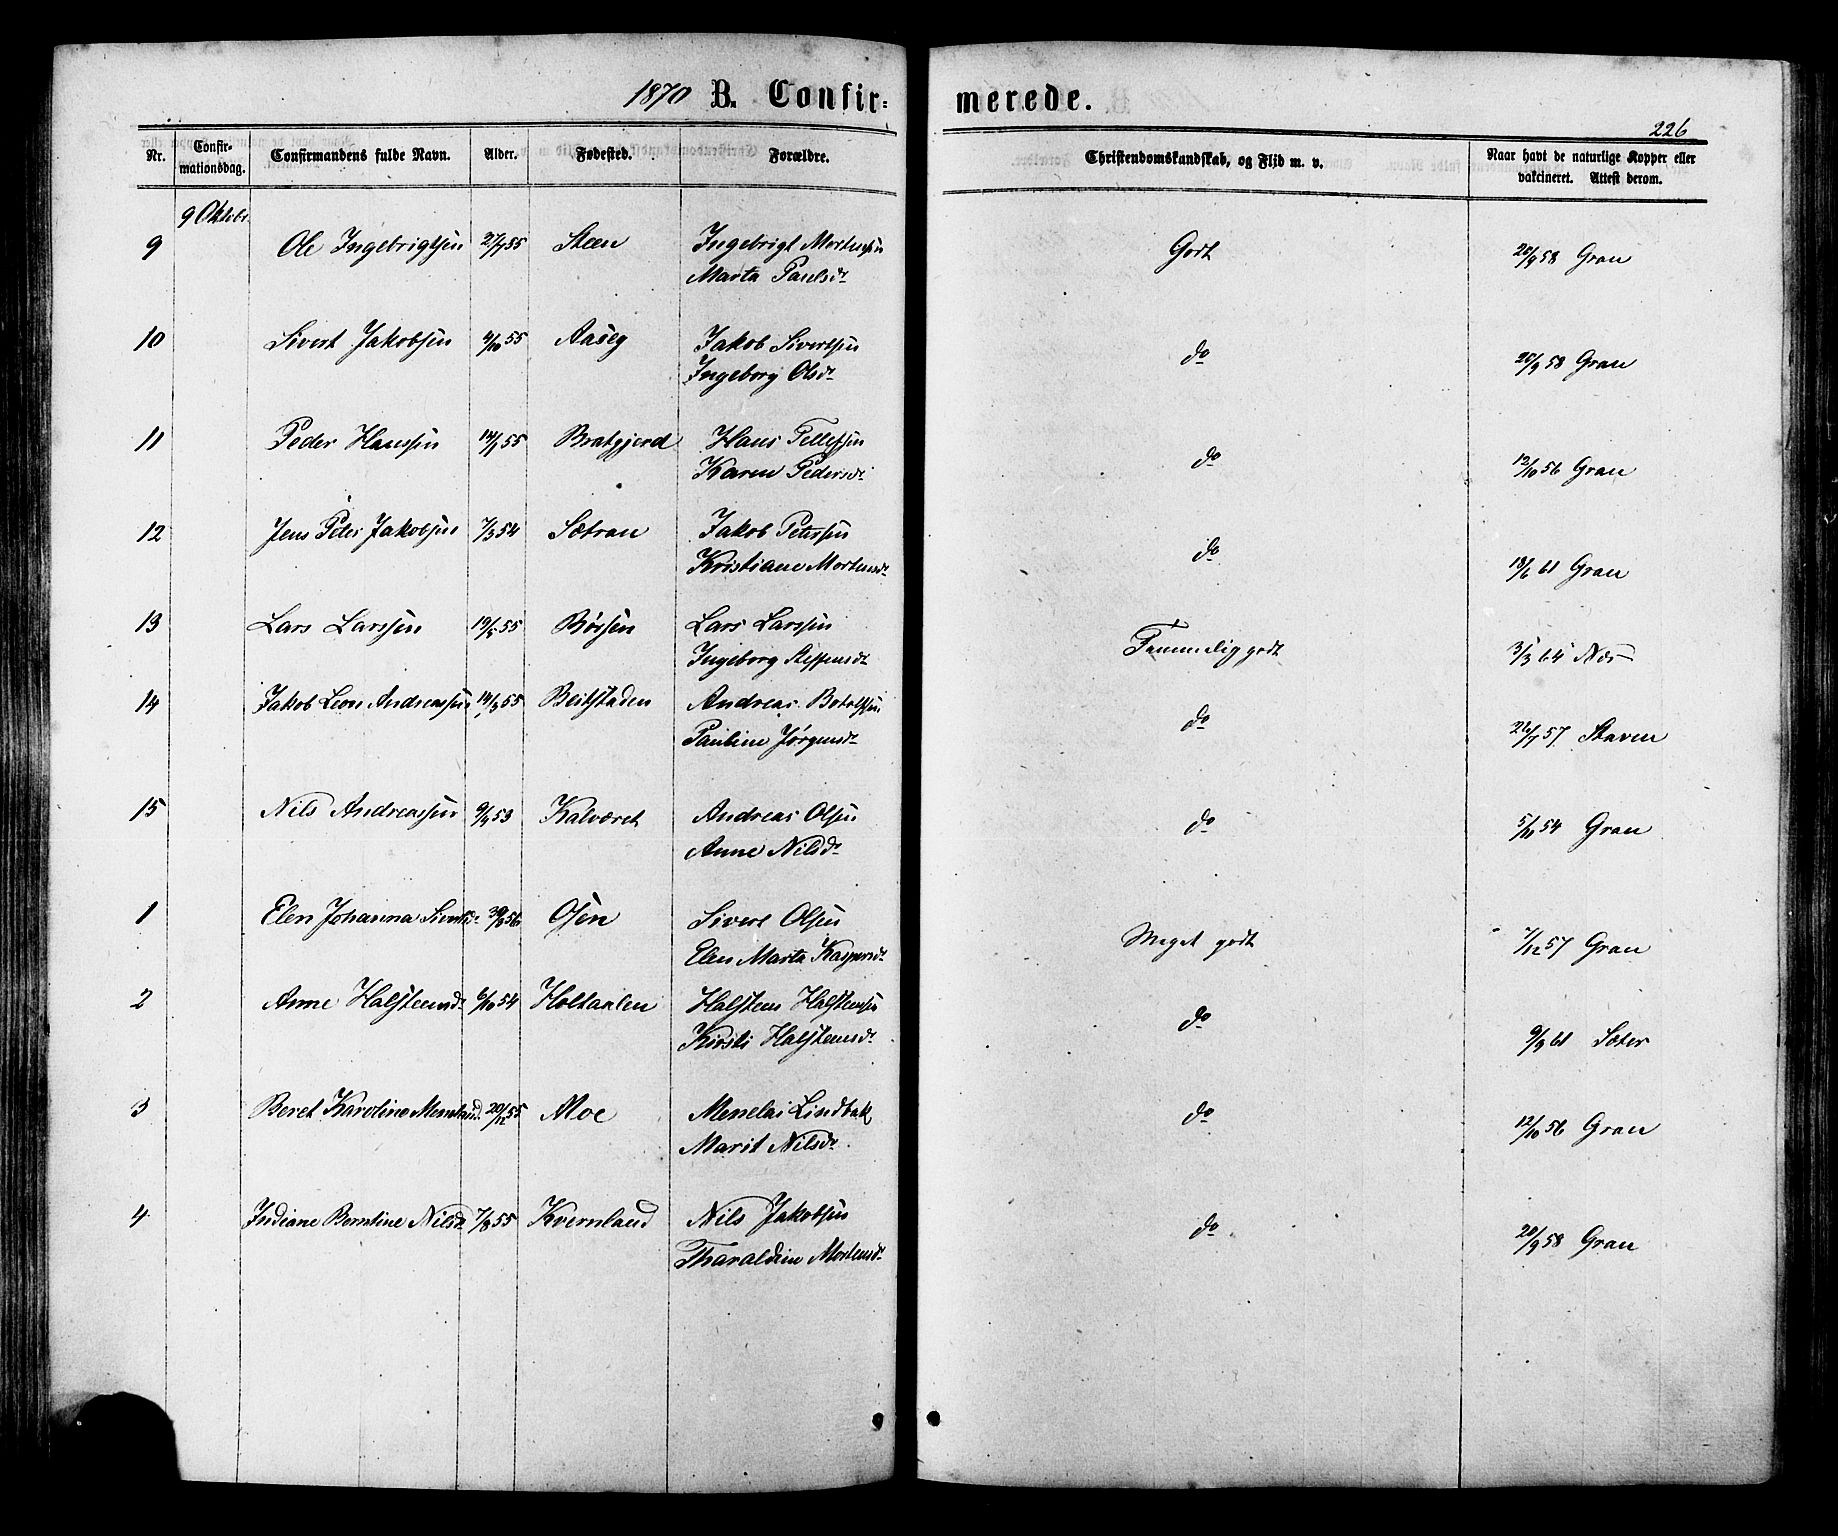 1870 B. Confir-merede.
226
Nr. Confir-mationsdag. Confirmandens fulde Navn. Alder. Fødested. Forældre. Christendomskundskab, og Flid m. v. Naar havt de naturlige Kopper eller vakcineret. Attest derom.
9 Oktobr
9 Ole Ingebrigtsen 27/7 55 Steen Ingebrigt Mortensen Godt 20/9 58 Gran
Marta Paulsdr
10 Sivert Jakobsen 4/10 55 Aaseg Jakob Sivertsen do 20/9 58 Gran
Ingeborg Olsdr
11 Peder Hanssen 55 Bratgjerd Hans Tellefsen do 12/10 56 Gran
Karen Pedersdr
12 Jens Peter Jakobsen 7/3 54 Sætran Jakob Petersen do 18/6 61 Gran
Kristiane Mortensdr
13 Lars Larssen 19/5 55 Børsen Lars Larssen Temmelig godt 3/3 64 Næs
Ingeborg Steffensdr
14 Jakob Leon Andreassen 14/3 55 Beitstaden Andreas Botolfsen do 26/7 57 Staven
Pauline Jørgensdr
15 Nils Andreassen 9/4 53 Kalværet Andreas Olsen do 54 Gran
Anne Nilsdr
1 Elen Johanna Sivertsdr 56 Osen Sivert Olsen Meget godt 7/12 57 Gran
Elen Marta Kaspersdr
2 Anne Halsteensdr 6/10 54 Holtaalen Halsteen Halsteensen do 9/9 61 Sæter
Kirsti Halsteensdr
3 Beret Karoline 20/12 55 Moe Menelai Lindbak do 12/10 56 Gran
Marit Nilsdr
4 Indiane Berntine Nilsdr 7/8 55 Kvernland Nils Jakobsen do 20/9 58 Gran
Tharaldine Mortensdr